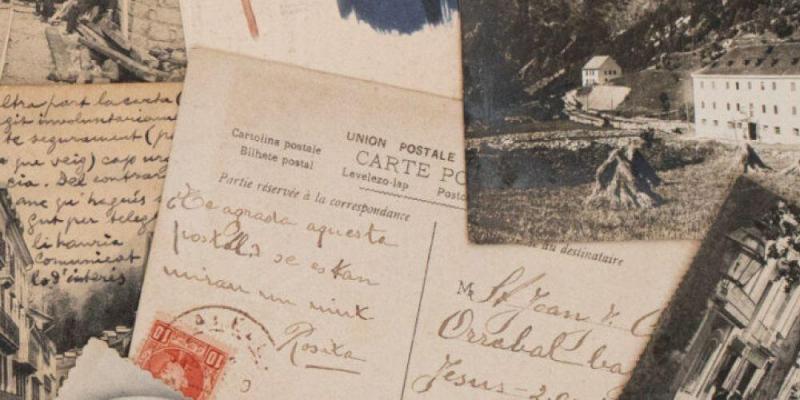 ltra part la carta
git involuntariame
te segurament (p
a que veig) cap ur
cia. Del contrar
anc qu' hagués
gut per teleg
li hauria
comunicat
lo d'interés
Cartolina postale
Bilhete postal
UNION POSTALE
CARTE PO
Levelezo-lap Posto
Partie réservée à la correspondance
¿Te agrada aquesta
postal? se estan
miran un niuet
Rosita
10 10
au destinataire
M. St. Joan
Orrobal
Jesus-2